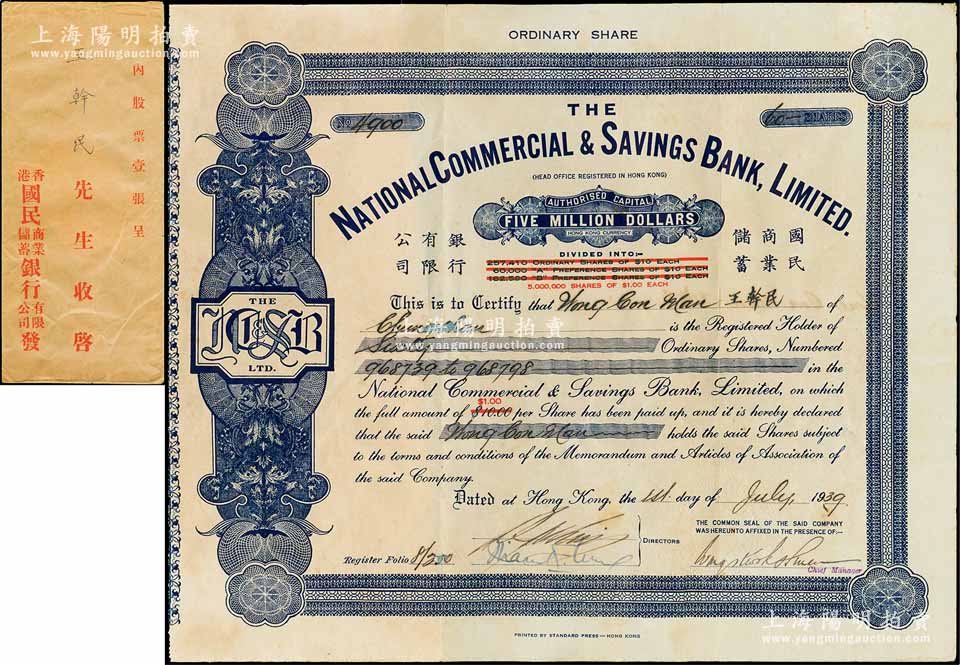 上海陽明拍賣
www.yangmingauction.com
內股票壹張呈
王幹民先生收啓
香港國民商業儲蓄銀行有限公司發
ORDINARY SHARE
No. 4900
60 SHARES
THE
NATIONAL COMMERCIAL & SAVINGS BANK, LIMITED.
(HEAD OFFICE REGISTERED IN HONG KONG)
AUTHORISED CAPITAL
FIVE MILLION DOLLARS
HONG KONG CURRENCY
國民商業儲蓄銀行有限公司
DIVIDED INTO:-
257,410 ORDINARY SHARES OF $10 EACH
60,000 "A" PREFERENCE SHARES OF $10 EACH
182,500 "B" PREFERENCE SHARES OF $10 EACH
5,000,000 SHARES OF $1.00 EACH
This is to Certify that Wong Con Man 王幹民 of
is the Registered Holder of
Sixty Ordinary Shares, Numbered
968739 to 968798 in the
National Commercial & Savings Bank, Limited, on which
$1.00
the full amount of $10.00 per Share has been paid up, and it is hereby declared
that the said Wong Con Man holds the said Shares subject
to the terms and conditions of the Memorandum and Articles of Association of
the said Company.
Dated at Hong Kong, the 1st day of July, 1939
THE COMMON SEAL OF THE SAID COMPANY
WAS HEREUNTO AFFIXED IN THE PRESENCE OF:-
DIRECTORS
Register Folio 8/200
Chief Manager
THE
NC&SB
LTD.
PRINTED BY STANDARD PRESS—HONG KONG
上海陽明拍賣
www.yangmingauction.com
上海陽明拍賣
www.yangmingauction.com